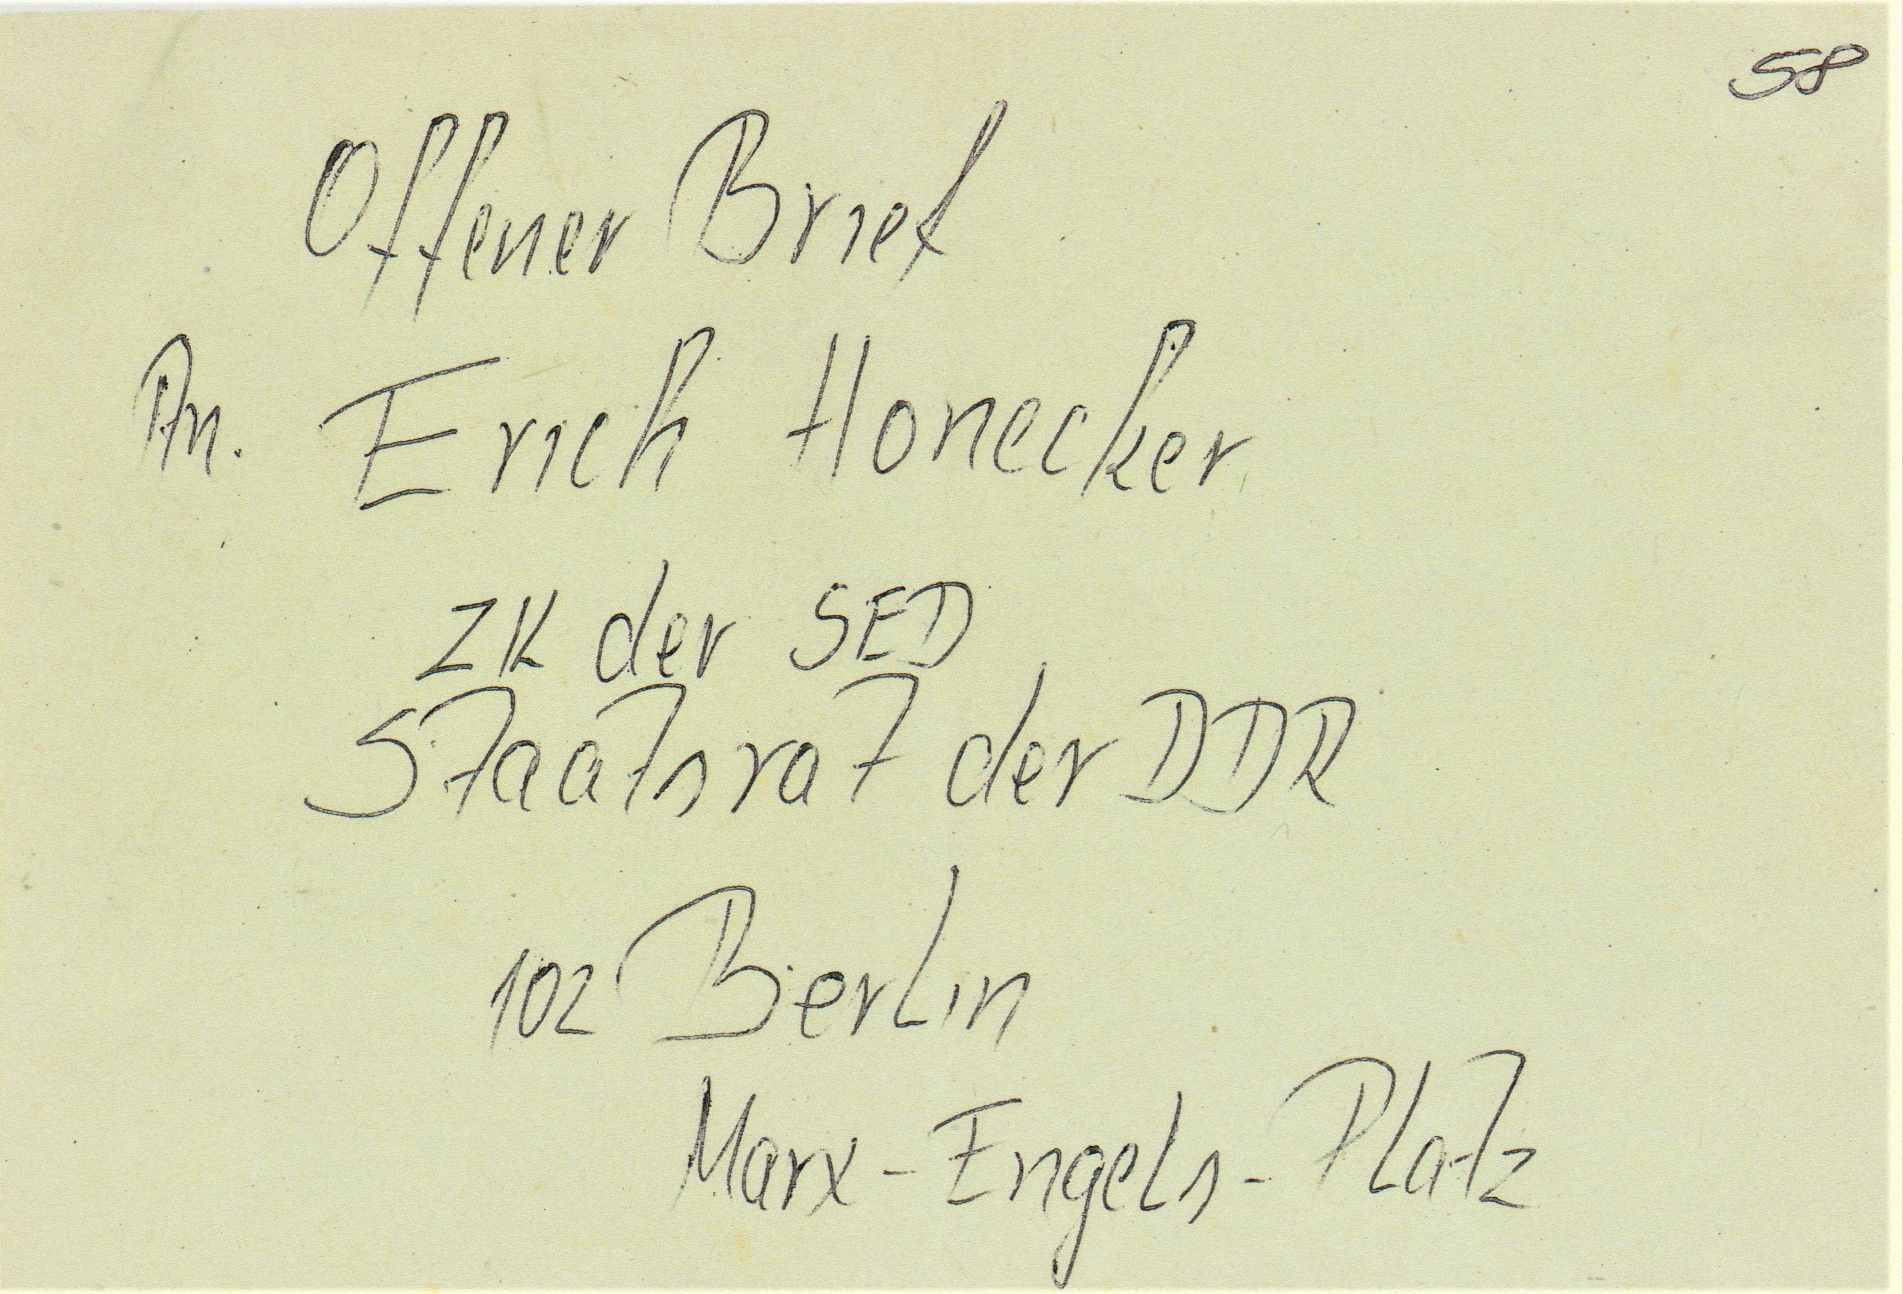 58
Offener Brief
An. Erich Honecker
ZK der SED
Staatsrat der DDR
102 Berlin
Marx-Engels-Platz